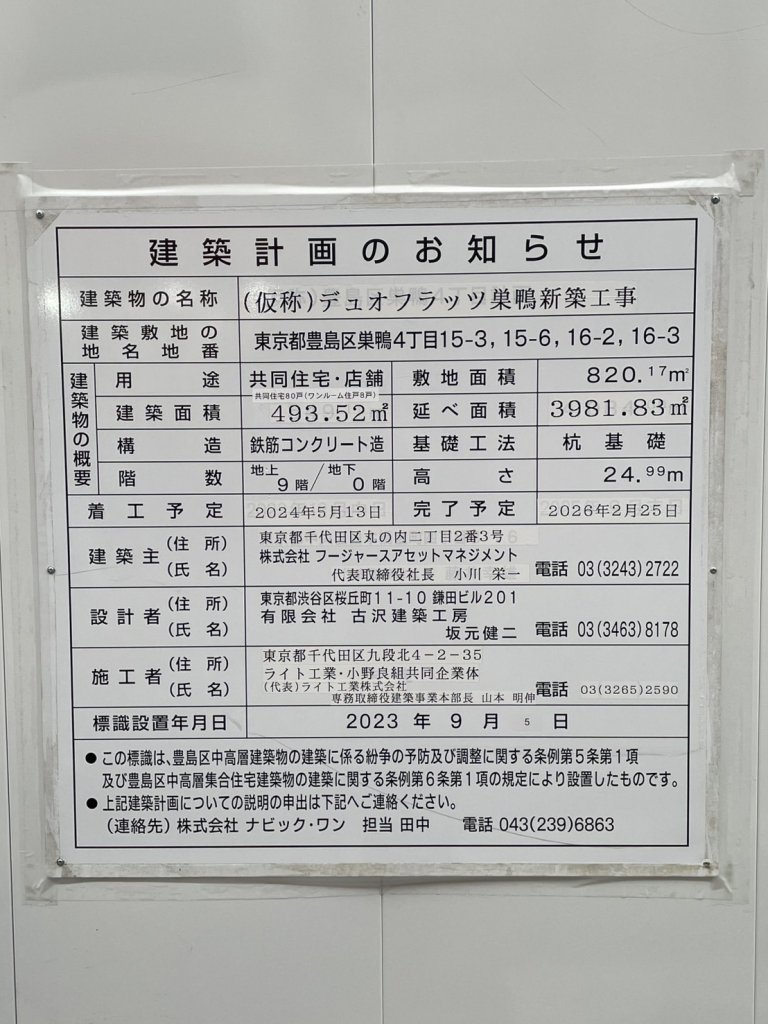 建築計画のお知らせ
建築物の名称 (仮称)デュオフラッツ巣鴨新築工事
建築敷地の地名地番 東京都豊島区巣鴨4丁目15-3, 15-6, 16-2, 16-3
建築物の概要
用途 共同住宅・店舗 敷地面積 820.17㎡
共同住宅80戸(ワンルーム住戸8戸)
建築面積 493.52㎡ 延べ面積 3981.83㎡
構造 鉄筋コンクリート造 基礎工法 杭基礎
階数 地上9階/地下0階 高さ 24.99m
着工予定 2024年5月13日 完了予定 2026年2月25日
建築主 (住所) 東京都千代田区丸の内二丁目2番3号
(氏名) 株式会社 フージャースアセットマネジメント
代表取締役社長 小川 栄一 電話 03(3243)2722
設計者 (住所) 東京都渋谷区桜丘町11-10 鎌田ビル201
(氏名) 有限会社 古沢建築工房
坂元健二 電話 03(3463)8178
施工者 (住所) 東京都千代田区九段北4-2-35
(氏名) ライト工業・小野良組共同企業体
(代表)ライト工業株式会社
専務取締役建築事業本部長 山本 明伸 電話 03(3265)2590
標識設置年月日 2023年9月5日
● この標識は、豊島区中高層建築物の建築に係る紛争の予防及び調整に関する条例第5条第1項
及び豊島区中高層集合住宅建築物の建築に関する条例第6条第1項の規定により設置したものです。
● 上記建築計画についての説明の申出は下記へご連絡ください。
(連絡先) 株式会社 ナビック・ワン 担当 田中 電話 043(239)6863